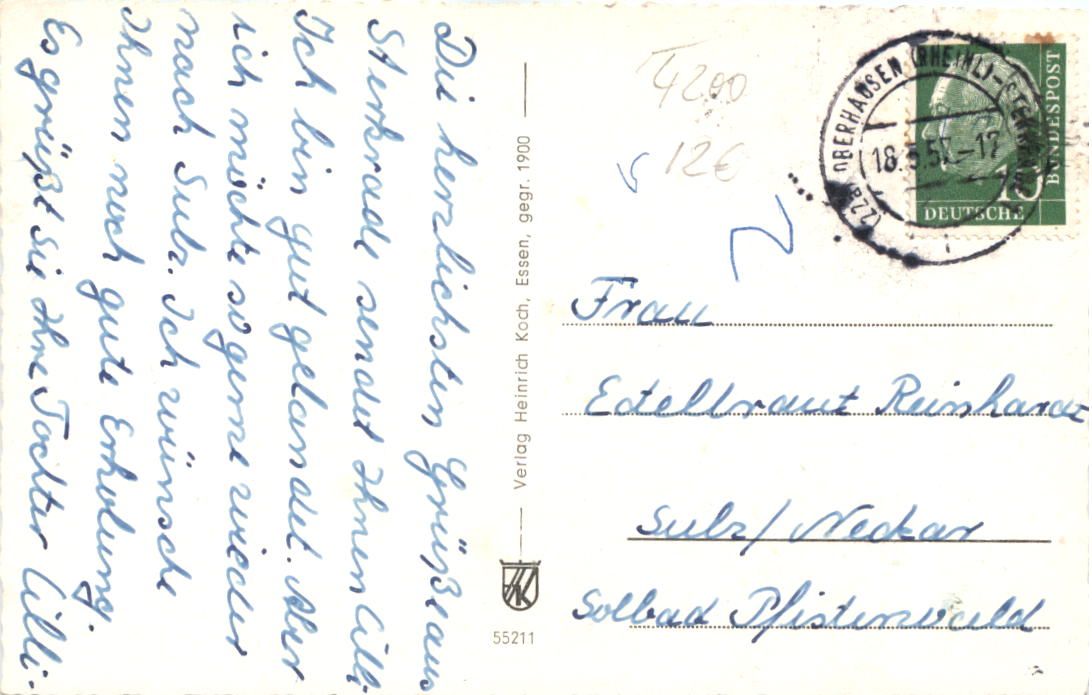 Die herzlichsten Grüße aus
Sterkrade sendet Ihnen Cilli
Ich bin gut gelandet. Aber
ich möchte so gerne wieder
nach Sulz. Ich wünsche
Ihnen noch gute Erholung.
Es grüßt sie Ihre Tochter Cilli.
Verlag Heinrich Koch, Essen, gegr. 1900
HK
55211
4200
12€
(22a) OBERHAUSEN (RHEINL)-STERKRADE
18. 5.57.-17
DEUTSCHE
BUNDESPOST
10
Frau
Edeltraut Reinhardt
Sulz/Neckar
Solbad Pfisterwald